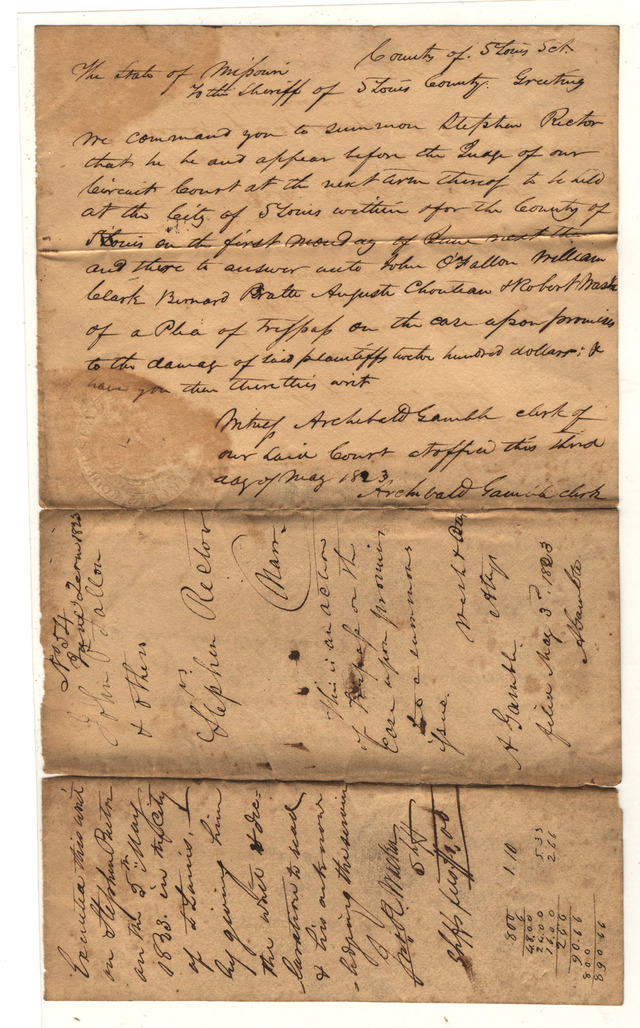 County of St Louis Sct.
The State of Missouri
To the Sheriff of St Louis County. Greeting
We command you to summon Stephen Rector
that he be and appear before the Judge of our
Circuit Court at the next term thereof to be held
at the City of St Louis within & for the County of
St Louis on the first monday of June next then
and there to answer unto John O'Fallon William
Clark Bernard Pratte Auguste Chouteau & Robert Wash
of a Plea of Trespass on the case upon promises
to the damage of said plaintiffs twelve hundred dollars; &
have you then there this writ
Witness Archibald Gamble clerk of
our said Court at office this third
day of May 1823
Archibald Gamble clerk
No 54
June Term 1823
John O'Fallon
& others
vs
Stephen Rector
Narr.
This is an action
of Trespass on the
case upon promises
Let a summons
issue.
Wash &
Attys
A Gamble
filed May 3d. 1823
A Gamble
Executed this writ
on Stephen Rector
on the 5th May
1823. in the City
of St Louis,
by giving him
the writ & dec-
laration to read
& his acknow
-ledging the service
Shff
Shffs fees $1,00
1.10
5.33
2.66
800
6
48.00
24.00
16.00
2 6 6
90.66
800
890.66